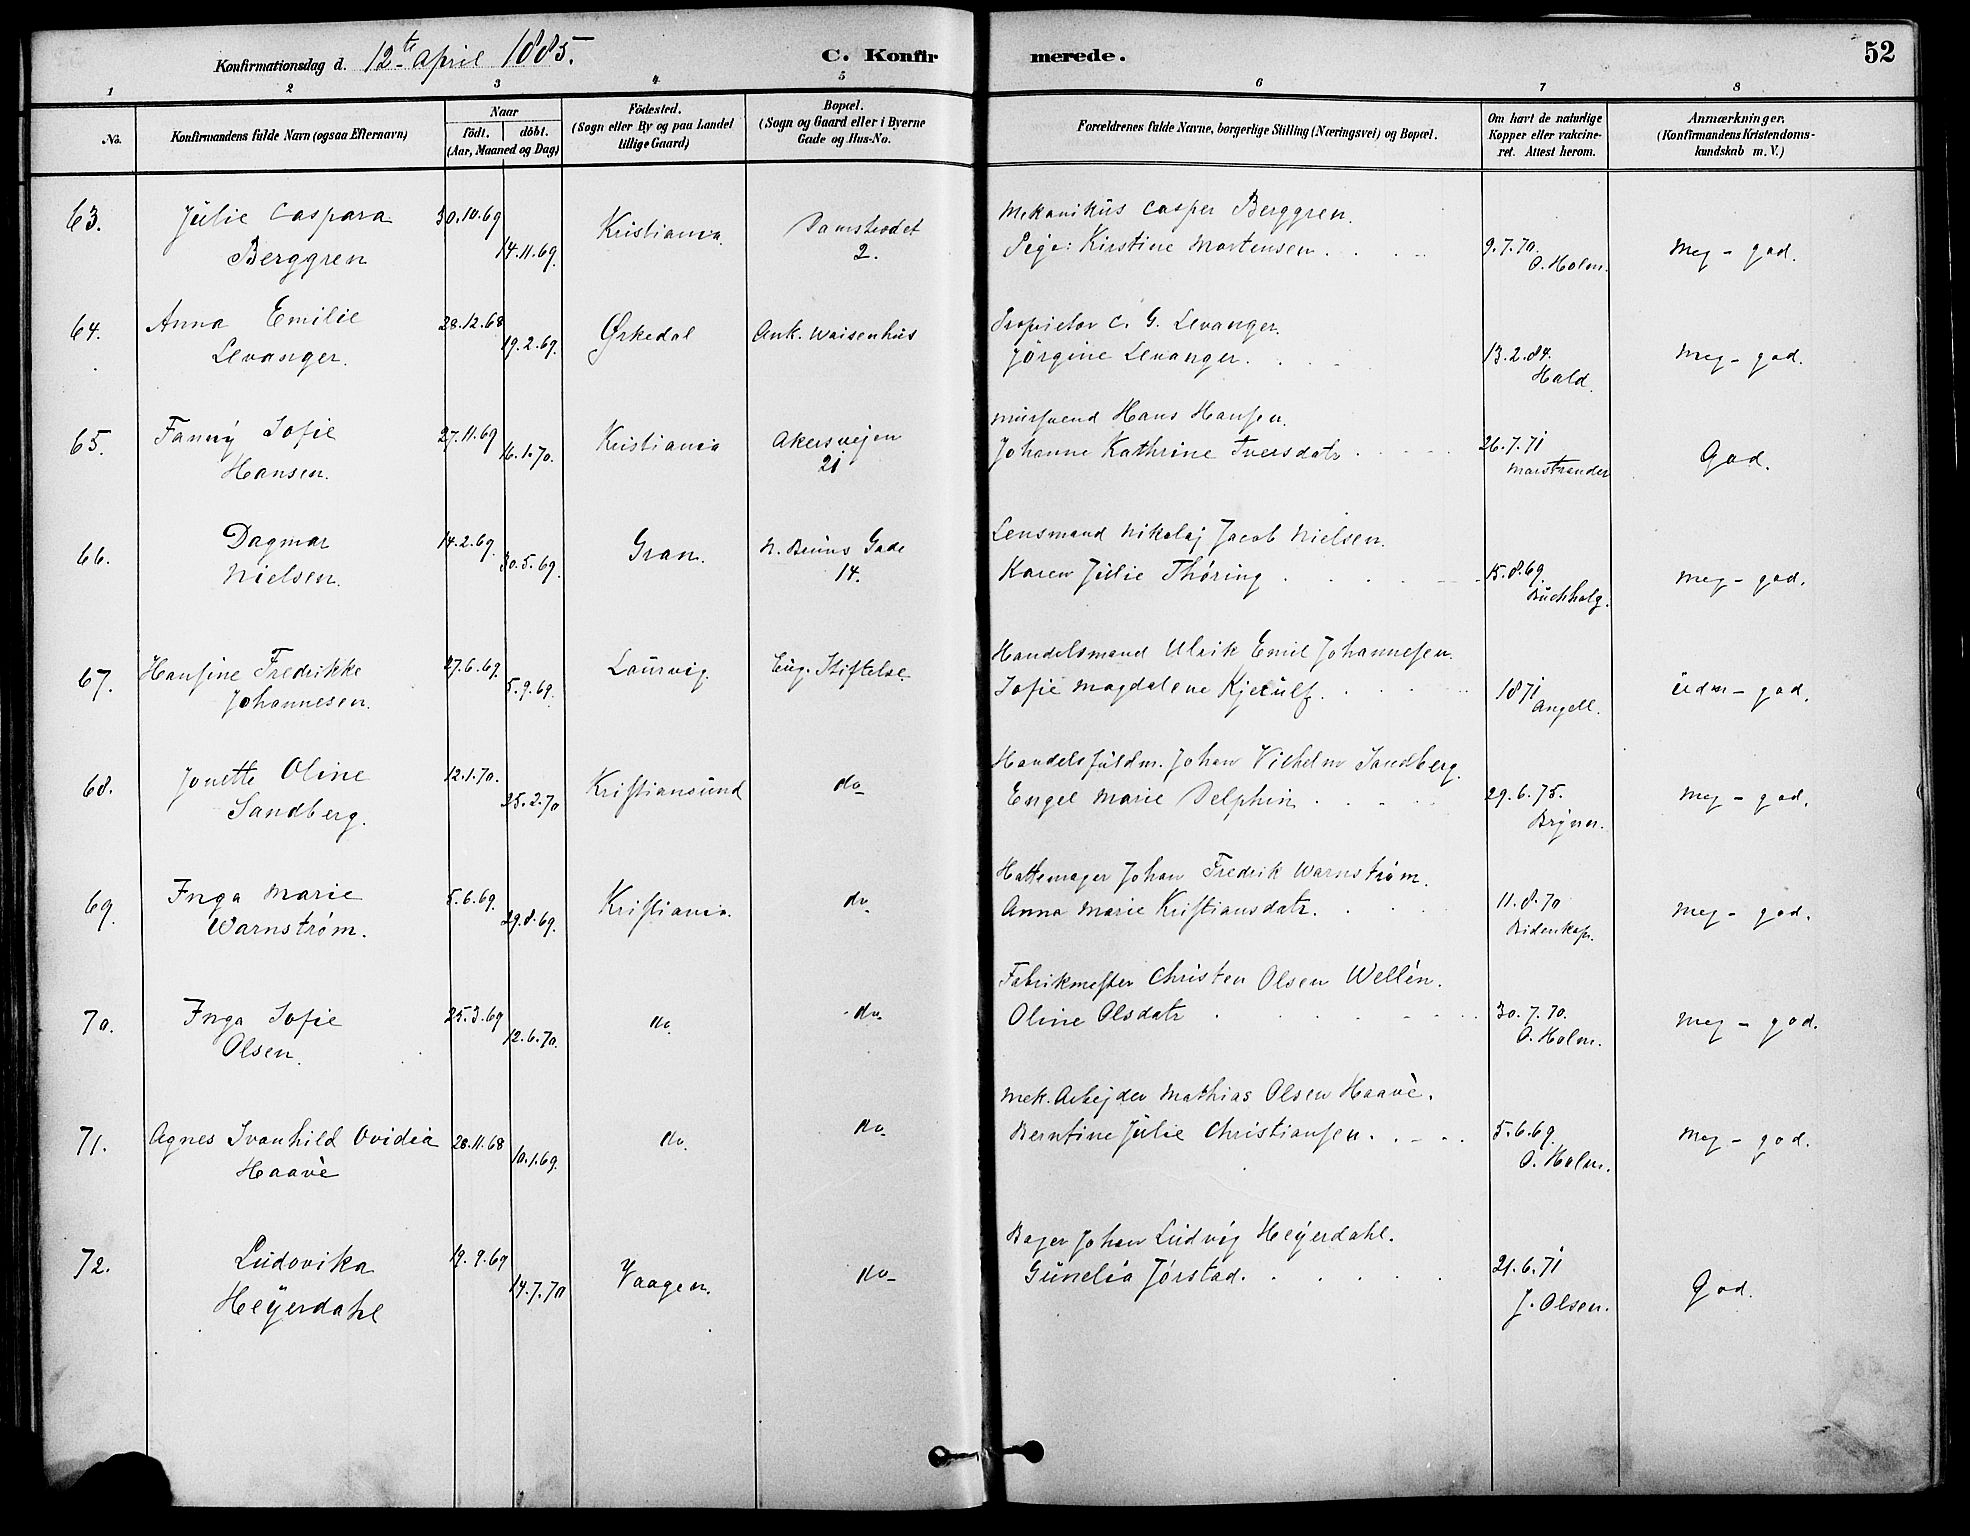 Konfirmationsdag d. 12te April 1885.
C. Konfirmerede.
52
1 2 3 4 5 6 7 8
No.
Konfirmandens fulde Navn (ogsaa Efternavn)
Naar
födt. döbt.
(Aar, Maaned og Dag)
Födested.
(Sogn eller By og paa Landet
tillige Gaard)
Bopæl.
(Sogn og Gaard eller i Byerne
Gade og Hus-No.
Forældrenes fulde Navne, borgerlige Stilling (Næringsvei) og Bopæl.
Om havt de naturlige
Kopper eller vakcine-
ret. Attest herom.
Anmærkninger.
(Konfirmandens Kristendoms-
kundskab m. V.)
63. Julie Caspara 30.10.69 Kristiania Damstredet Mekanikus Casper Berggren.
Berggren 14.11.69. 2. Pige: Kirstine Mortensen 9.7.70. Meg - god.
O. Holm.
64. Anna Emilie 28.12.68 Ørkedal Ank. Waisenhus Proprietor C. G. Levanger.
Levanger. 19.2.69. Jörgine Levanger. 13.2.84. Meg - god.
Hald.
65. Fanny Sofie 27.11.69 Kristiania Akersvejen Mursvend Hans Hansen.
Hansen. 16.1.70. 21 Johanne Kathrine Iversdatr 26.7.71 God.
Marstrander
66. Dagmar 14.2.69. Gran. N. Bruns Gade Lensmand Nikolaj Jacob Nielsen.
Nielsen. 30.5.69. 14. Karen Julie Thøring 15.8.69. Meg - god.
Buchholz.
67. Hansine Fredrikke 27.6.69. Laurvig. Eug. Stiftelse. Handelsmand Ulrik Emil Johannesen.
Johannesen. 5.9.69. Sofie Magdalene Kjerulf. 1871 Udm - god.
Angell.
68. Jonette Oline 12.1.70. Kristiansund do Handelsfuldm. Johan Vilhelm Sandberg.
Sandberg. 25.2.70 Engel Marie Delphin 29.6.75. Meg - god.
Bryner.
69. Inga Marie 5.6.69. Kristiania. do Hattemager Johan Fredrik Warnstrøm.
Warnstrøm. 29.8.69. Anna Marie Kristiansdatr. 11.8.70 Meg - god.
Bidenkap.
70. Inga Sofie 25.3.69 do do Fabrikmester Christen Olsen Wellén.
Olsen. 12.6.70. Oline Olsdatr 30.7.70. Meg - god.
O. Holm.
71. Agnes Svanhild Ovidia 28.11.68 do do Mek. Arbejder Mathias Olsen Haavè.
Haavè 10.1.69. Berntine Julie Christiansen. 5.6.69. Meg - god.
O. Holm.
72. Ludovika 19.9.69 Vaagen. do Bager Johan Ludvig Heyerdahl.
Heyerdahl 14.7.70 Gunelia Jørstad. 21.6.71 God.
J. Olsen.